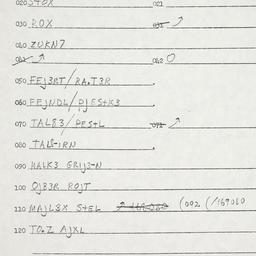 020 S+OX 021
030 ROX 031
040 ZUKN7
041 042 O
050 FEJ3RT/RA.T3R
060 FEJNDL/PJES+K3
070 TAL83/PES+L 071
080 TAL8-IRN
090 HALK3 GRIJ2-N
100 OJB3R ROJT
110 MAJL8X S+EL (092 (/169080
120 TO.Z AJXL